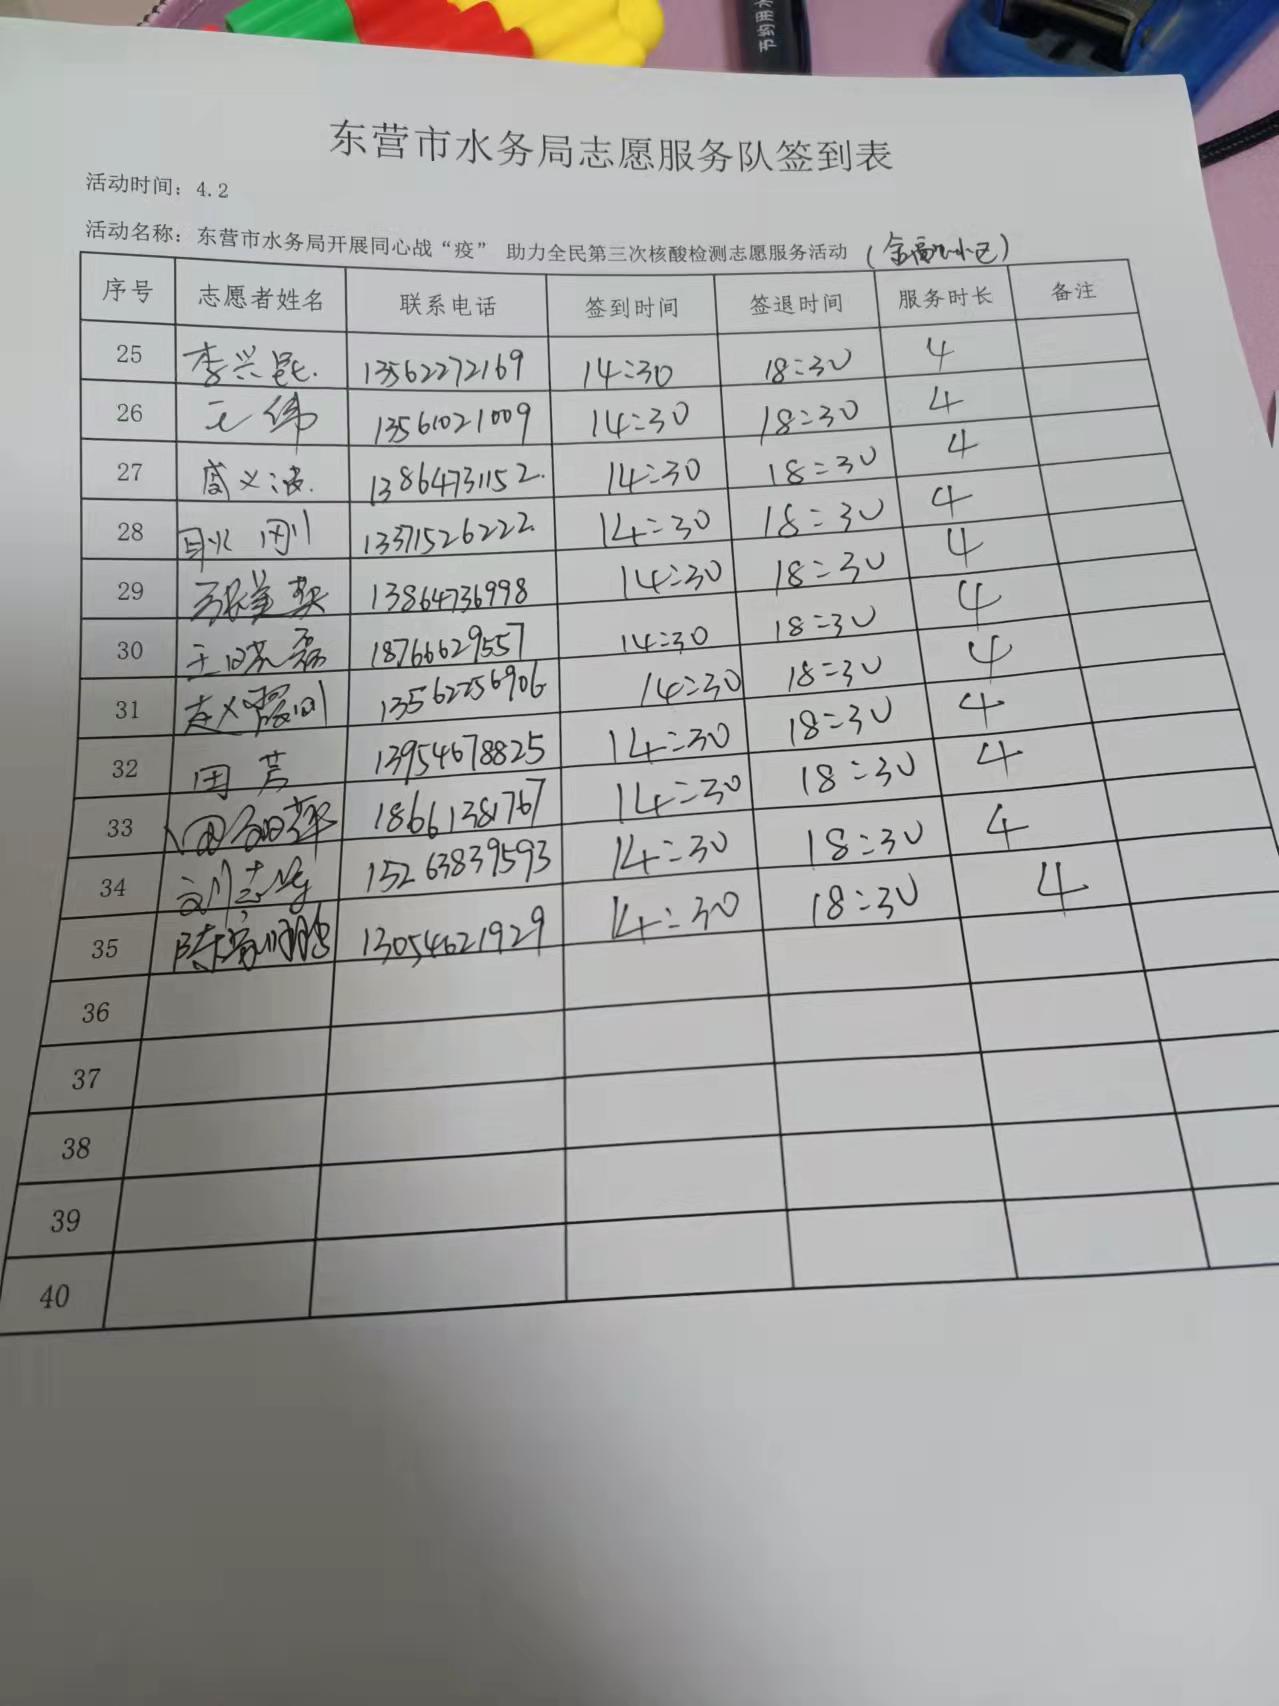 节约用水
东营市水务局志愿服务队签到表
活动时间：4.2
活动名称：东营市水务局开展同心战“疫” 助力全民第三次核酸检测志愿服务活动 （ 小区）
序号 志愿者姓名 联系电话 签到时间 签退时间 服务时长 备注
25 李兴昆. 13562272169 14:30 18:30 4
26 王伟 13561021009 14:30 18:30 4
27 义波. 13864731152. 14:30 18:30 4
28 刚 13371526222. 14:30 18:30 4
29 张美英 13864736998 14:30 18:30 4
30 王晓磊 18766629557 14:30 18:30 4
31 赵义刚 13562256906 14:30 18:30 4
32 田芳 13954678825 14:30 18:30 4
33 萍 18661381767 14:30 18:30 4
34 刘志 15263839593 14:30 18:30 4
35 陈鹏 13054621929 14:30 18:30 4
36
37
38
39
40